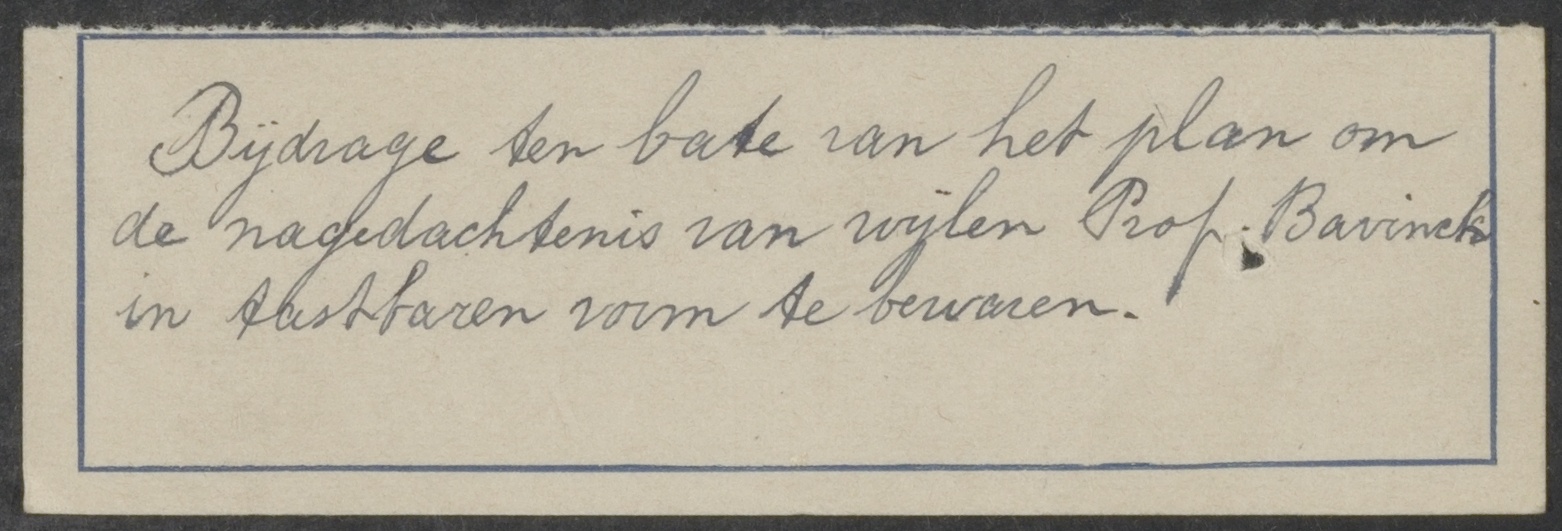 Bijdrage ten bate van het plan om
de nagedachtenis van wijlen Prof. Bavinck
in tastbaren vorm te bewaren.